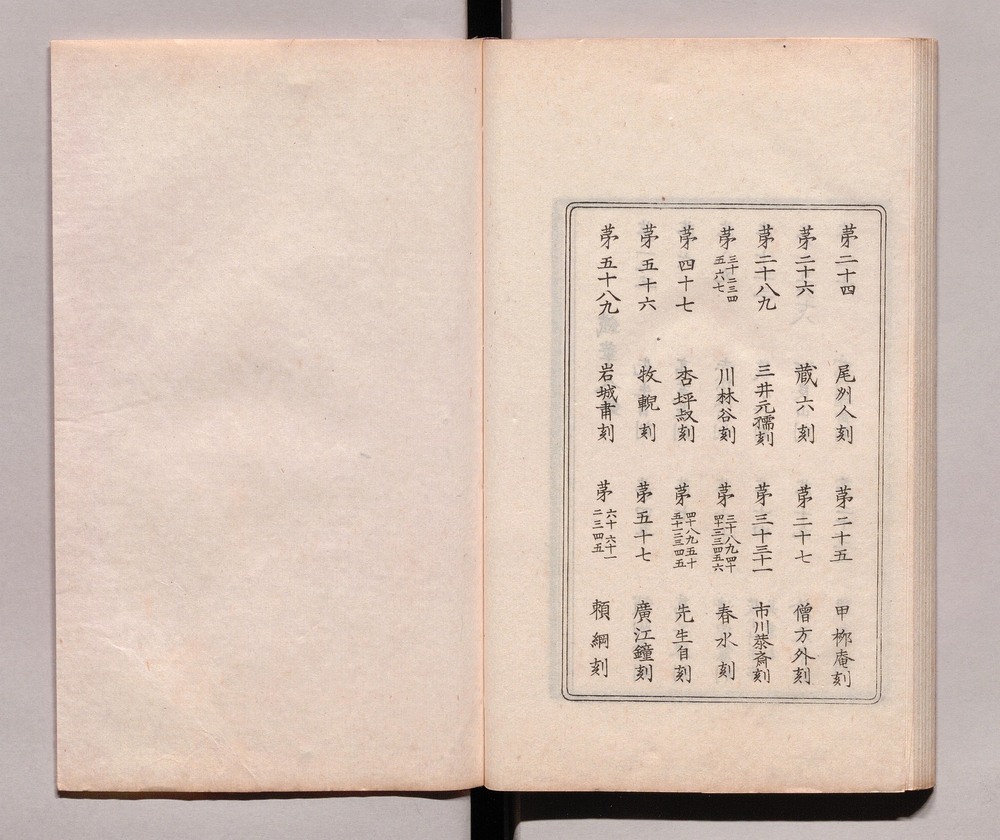 第二十四 尾州人刻 第二十五 甲栁庵刻
第二十六 蔵六刻 第二十七 僧方外刻
第二十八九 三井元孺刻 第三十三十一 市川恭斎刻
第三十二三四五六七 川林谷刻 第三十八九四十四十二三四五六 春水刻
第四十七 杏坪叔刻 第四十八九五十五十一二三四五 先生自刻
第五十六 牧輗刻 第五十七 廣江鐘刻
第五十八九 岩城肅刻 第六十六十一二三四五 頼綱刻